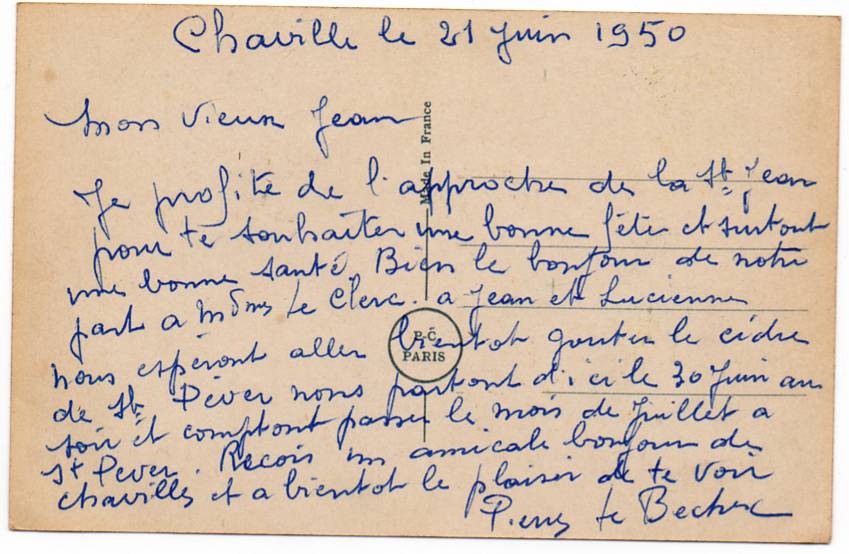 Chaville le 21 Juin 1950
Mon vieux Jean
Je profite de l'approche de la St Jean
pour te souhaiter une bonne fête et surtout
une bonne santé. Bien le bonjour de notre
part a Mme Le Clerc. a Jean et Lucienne
nous espéront aller bientot gouter le cidre
de St Péver nous partont d'ici le 30 Juin au
soir et comptont passer le mois de Juillet a
St Pever. Recois un amicale bonjour de
chaville et a bientot le plaisir de te voir
Pierre Le
Made In France
P.C.
PARIS